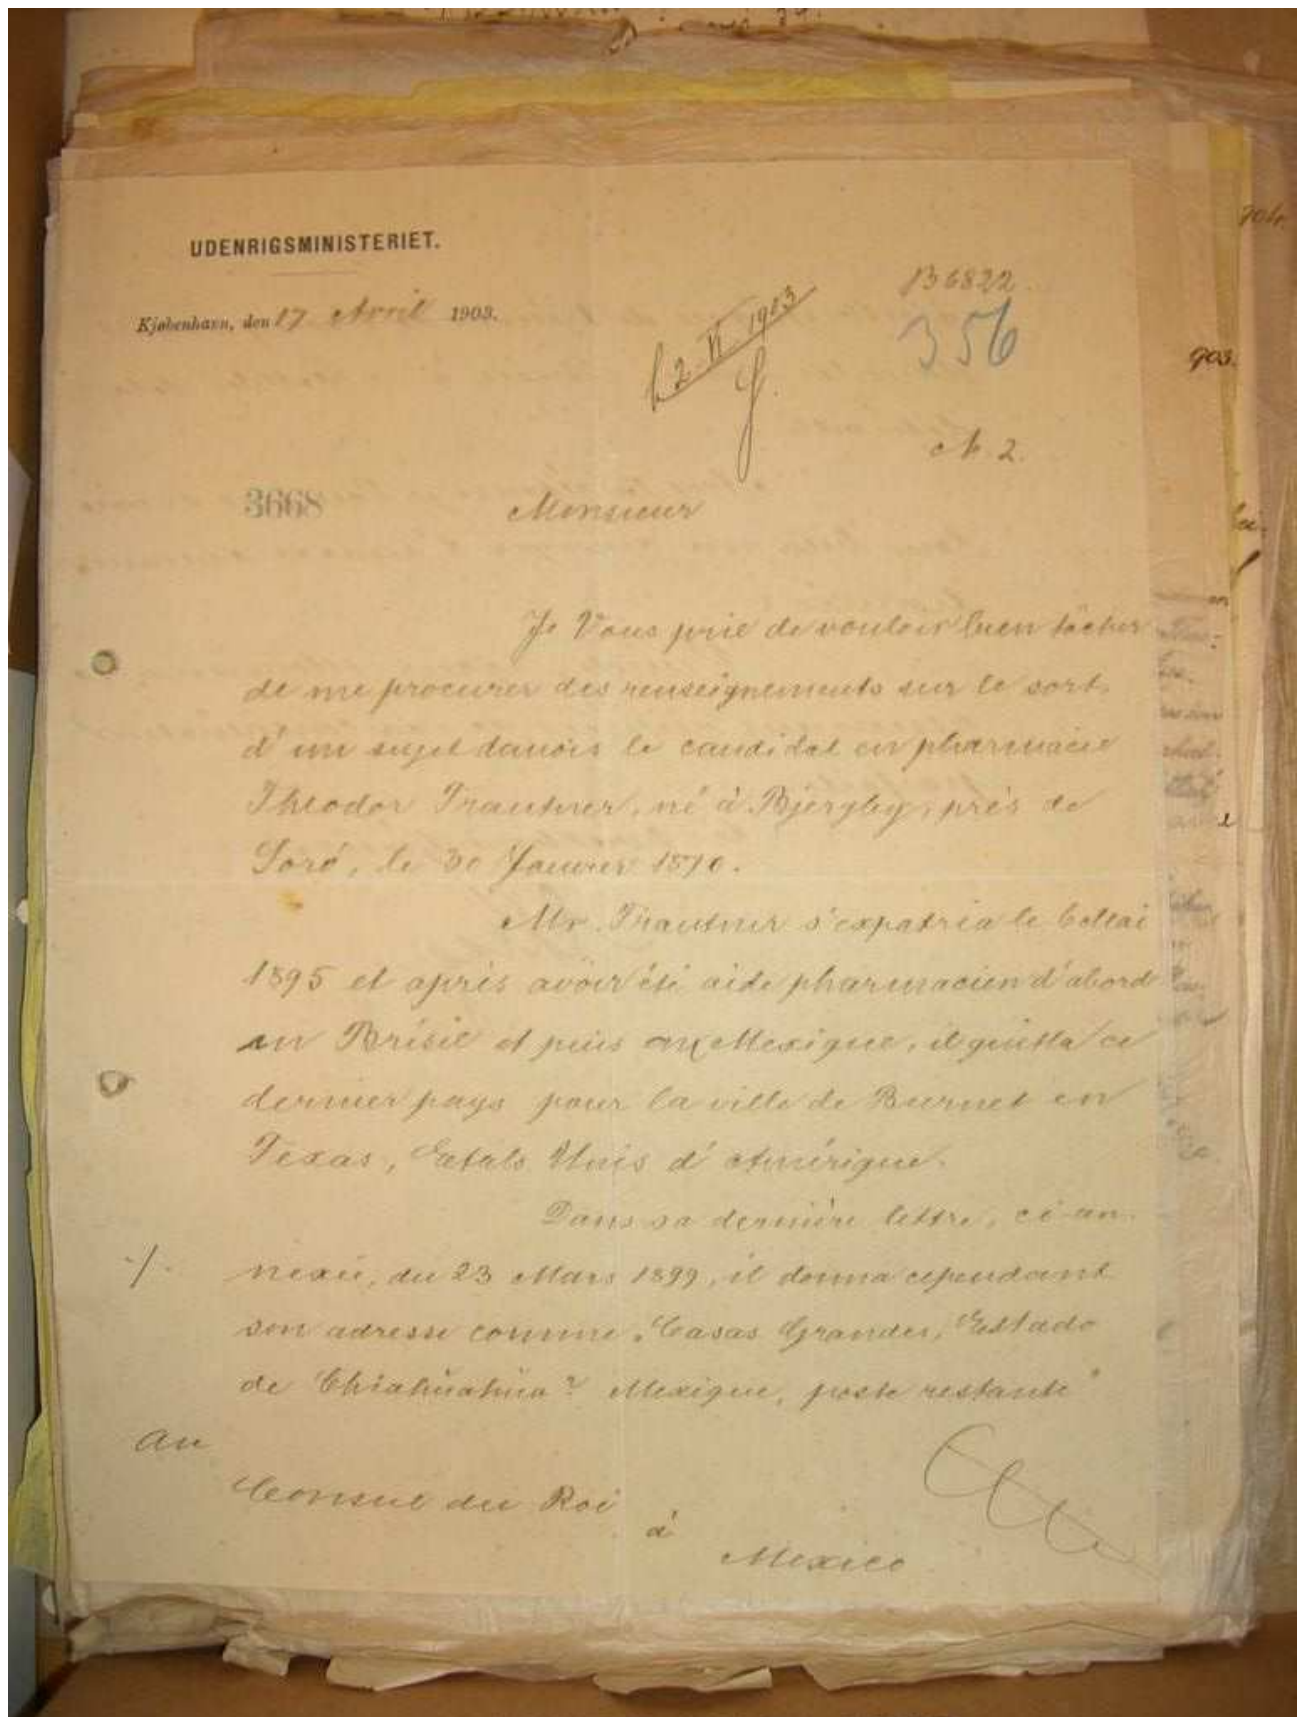 UDENRIGSMINISTERIET.
Kjøbenhavn, den 17 Avril 1903.
B6822.
356
2 VI 1903
N. 2.
3668
Monsieur
Je Vous prie de vouloir bien tâcher
de me procurer des renseignements sur le sort
d'un sujet danois le candidat en pharmacie
Theodor Trautner, né à Bjergby, près de
Sorö, le 30 Janvier 1870.
Mr. Trautner s'expatria le 6 Mai
1895 et après avoir été aide pharmacien d'abord
en Brésil et puis au Mexique, il quitta ce
dernier pays pour la ville de Burnet en
Texas, Etats Unis d'Amérique.
Dans sa dernière lettre, ci-an-
./. nexée, du 23 Mars 1899, il donna cependant
son adresse comme „Casas Grandes, Estado
de Chiahuahua? Mexique, poste restante"
Au
Consul du Roi
à
Mexico
904.
903.